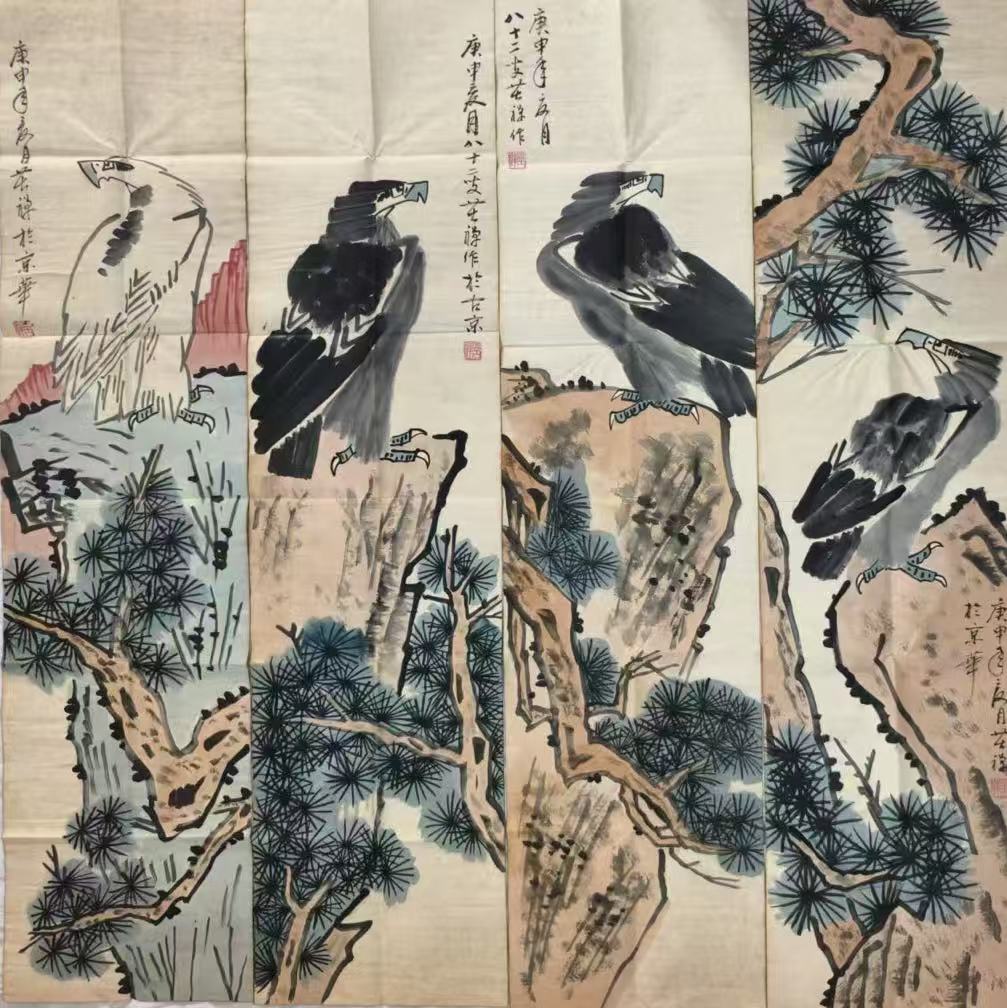 庚申年夏月苦禪於京華
庚申夏月八十二叟苦禪作於古京
庚申年夏月
八十二叟苦禪作
庚申年夏月苦禪
於京華